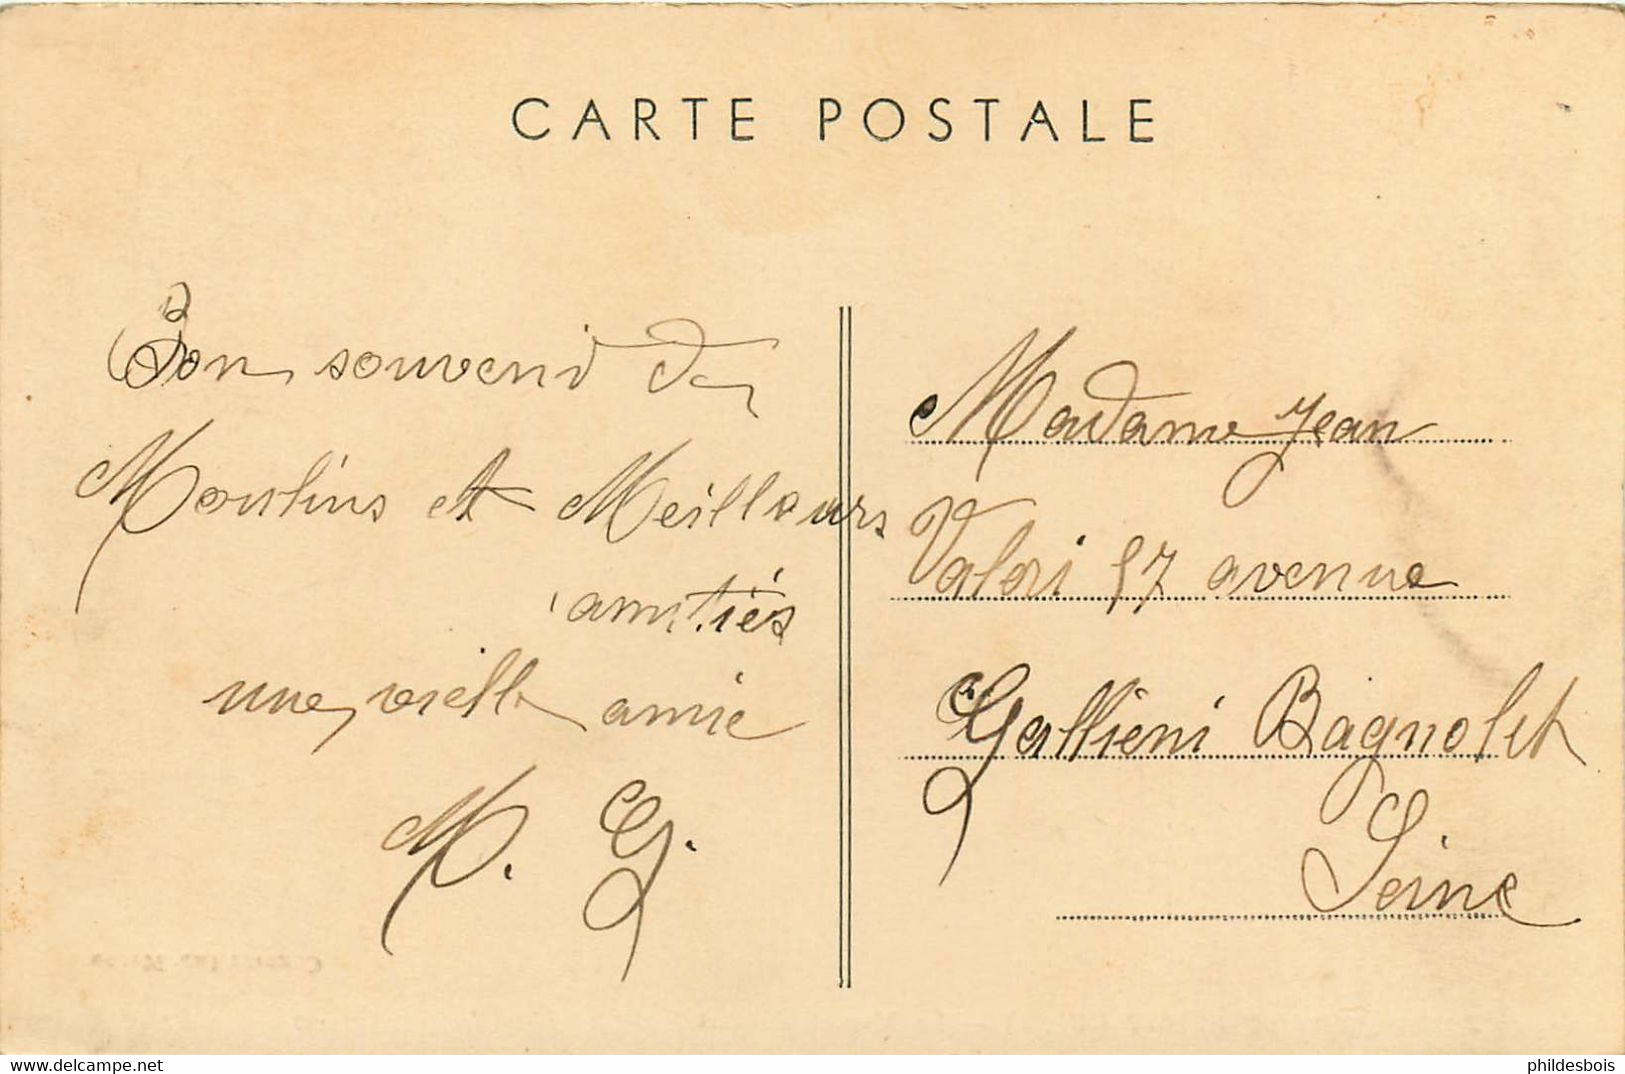 CARTE POSTALE
Bon souvenir de
Moulins et Meilleurs
amitiés
une vieille amie
M. G.
Madame Jean
Valori 57 avenue
Gallieni Bagnolet
Seine
www.delcampe.net
phildesbois